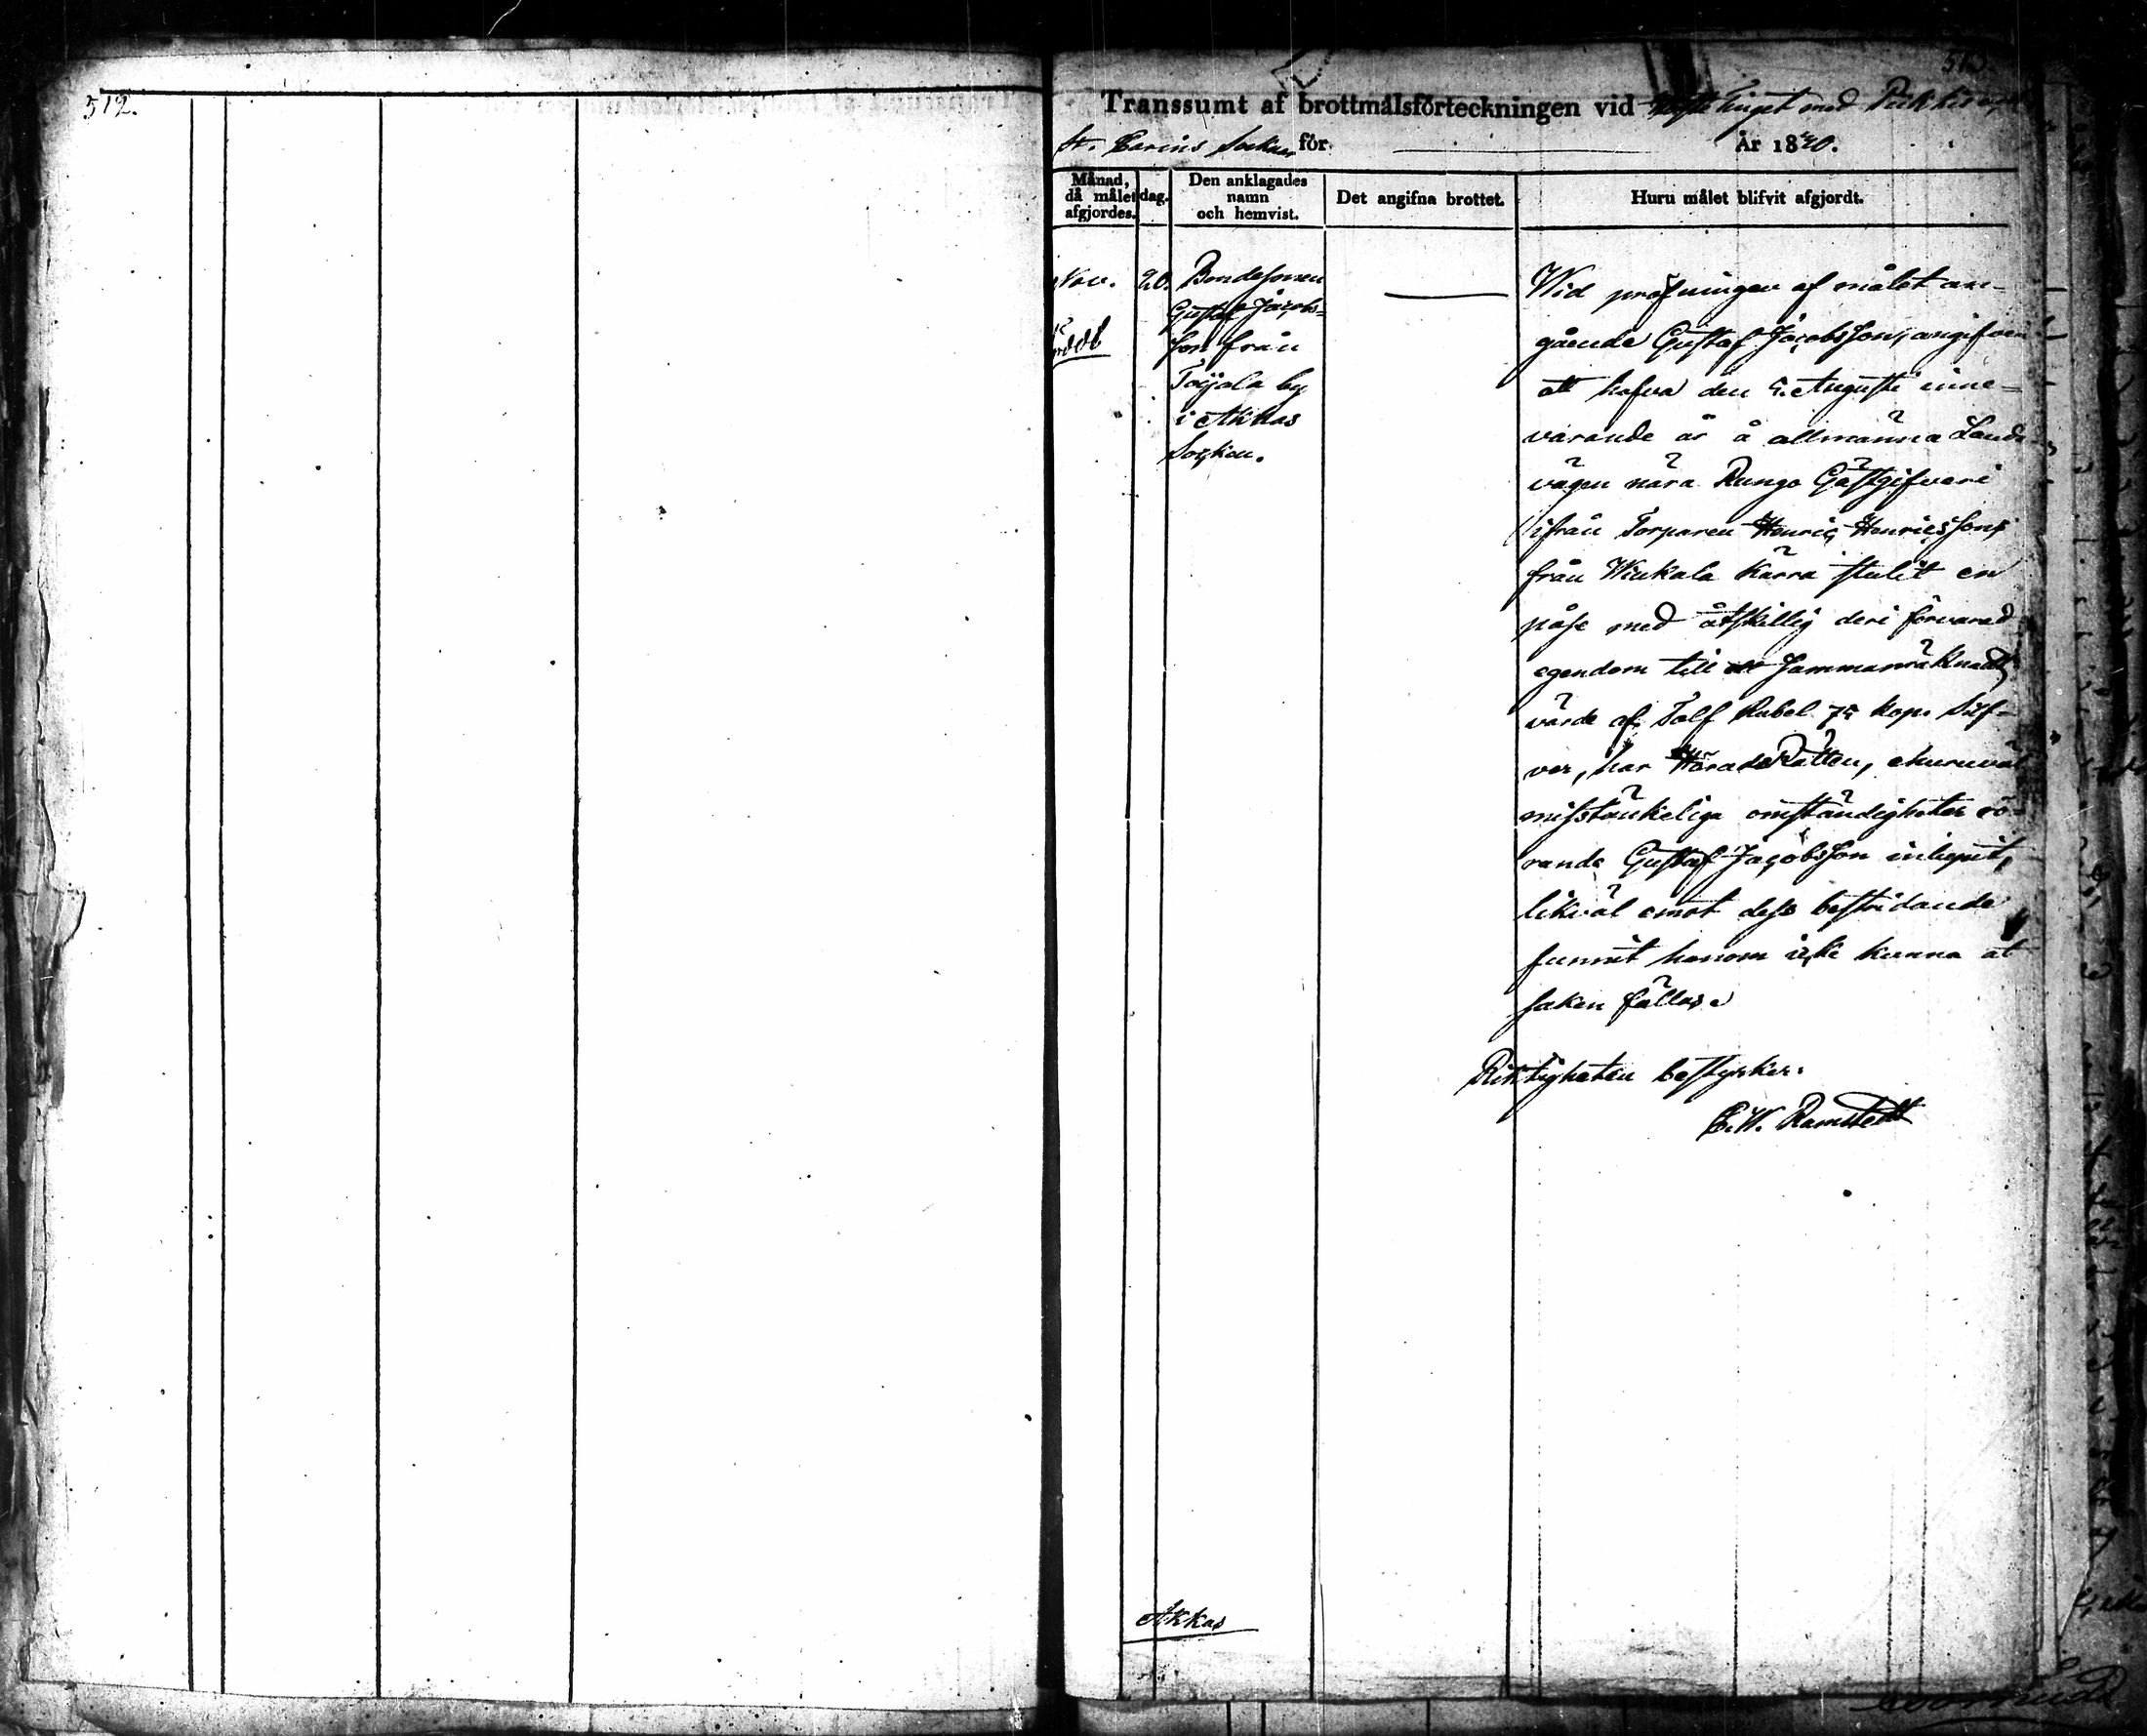 512.
513.
Transsumt af brottmålsförteckningen vid Höste tinget med Pikkis och
St. Carins Socknar för År 1840.
Månad, då målet afgjordes.
dag.
Den anklagades namn och hemvist.
Det angifna brottet.
Huru målet blifvit afgjordt.
Nov. 20.
Bondesonen
Gustaf Jacobs-
son från
Toijala by
i Akkas
Socken.
Wid pröfningen af målet an-
gående Gustaf Jacobsson, angifven
att hafva den 5. Augusti inne-
varande år å allmänna Lands-
vägen nära Rungo Gästgifveri
ifrån Torparen Henric Henricssons
från Wiukala kärra stulit en
påse med åtskillig deri förvarad
egendom till sammanräknadt
värde af Tolf Rubel 75 kop. Silf-
ver, har HäradsRätten, ehuruväl
misstänkeliga omständigheter rö-
rande Gustaf Jacobsson inlupit,
likväl emot dess bestridande
funnit honom icke kunna åt
saken fällas.
Riktigheten bestyrker:
C. W. Ramstedt
Akkas